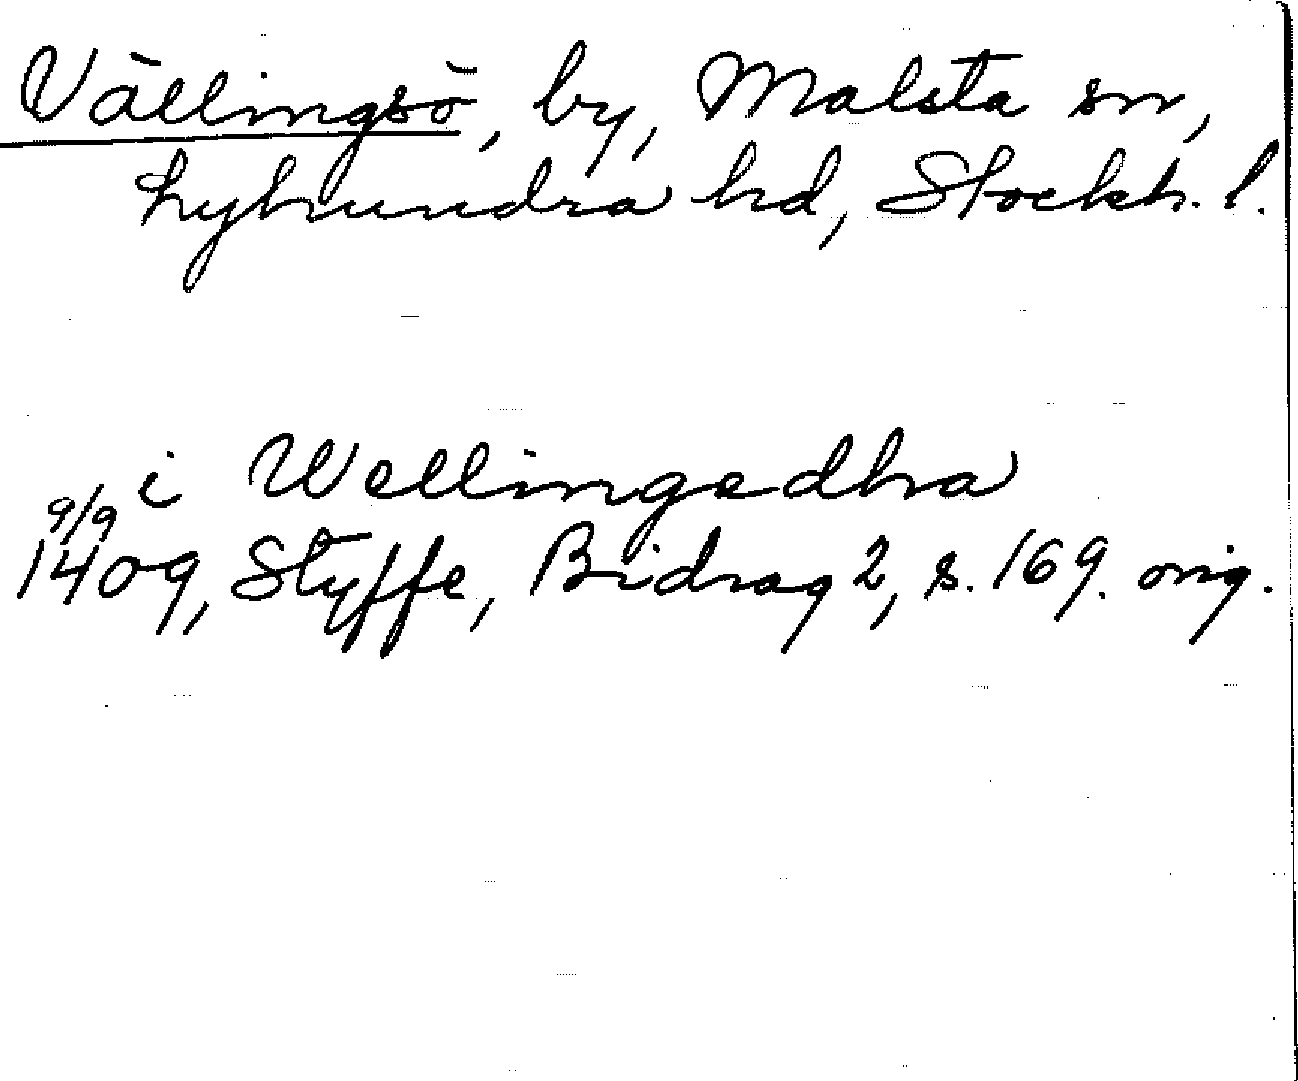 Vällingsö, by, Malsta sn,
Lyhundra hd, Stockh. l.
i Wellingedhra
9/9
1409, Styffe, Bidrag 2, s. 169. orig.